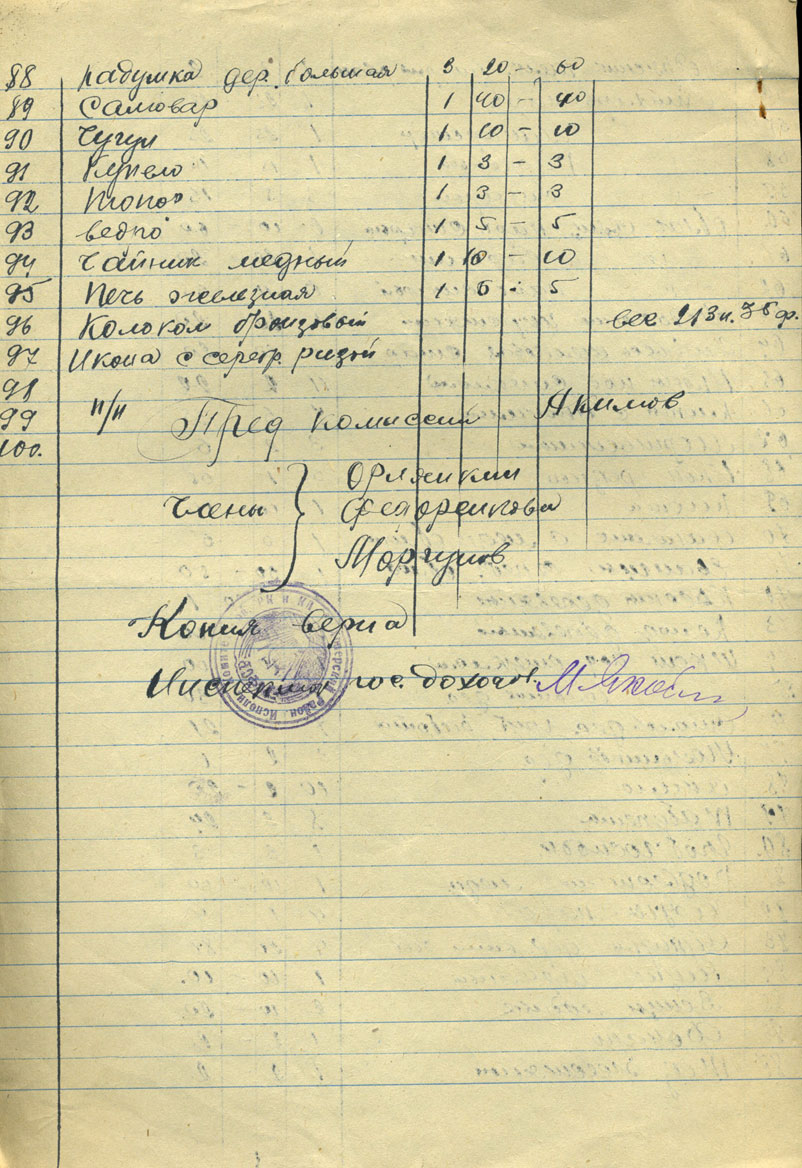 88 Кадушка дер. большая 3 20 – 60
89 Самовар 1 40 – 40
90 Чугун 1 10 – 10
91 1 3 – 3
92 Топор 1 3 – 3
93 ведро 1 5 – 5
94 Чайник медный 1 10 – 10
95 Печь железная 1 5 - 5
96 Колокол бронзовый вес 213 п. 35 ф.
97 Икона с серебр. ризой
98
99 п/п Пред комиссии Акимов
100.
Члены } Орляикин
Моргунов
Копия верна
Инспектор гос. доходов.